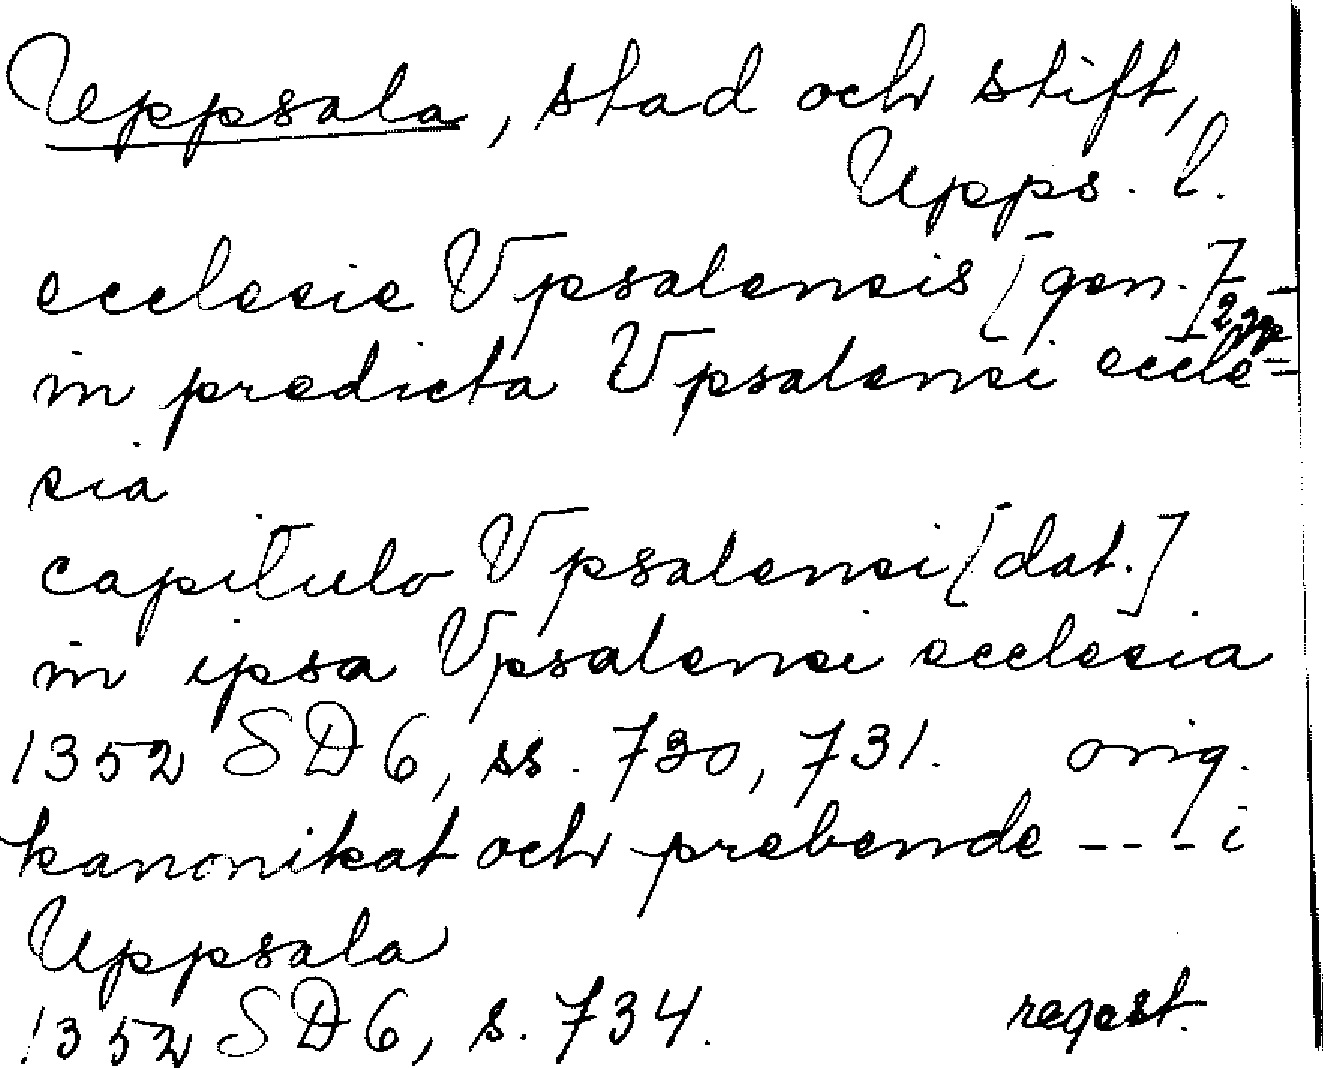 Uppsala, stad och stift,
Upps. l.
ecclesie Vpsalensis [gen.] 2 ggr
in predicta Vpsalensi eccle=
sia
capitulo Vpsalensi [dat.]
in ipsa Vpsalensi ecclesia
1352 SD 6, ss. 730, 731. orig.
kanonikat och prebende --- i
Uppsala
1352 SD 6, s. 734. regest.